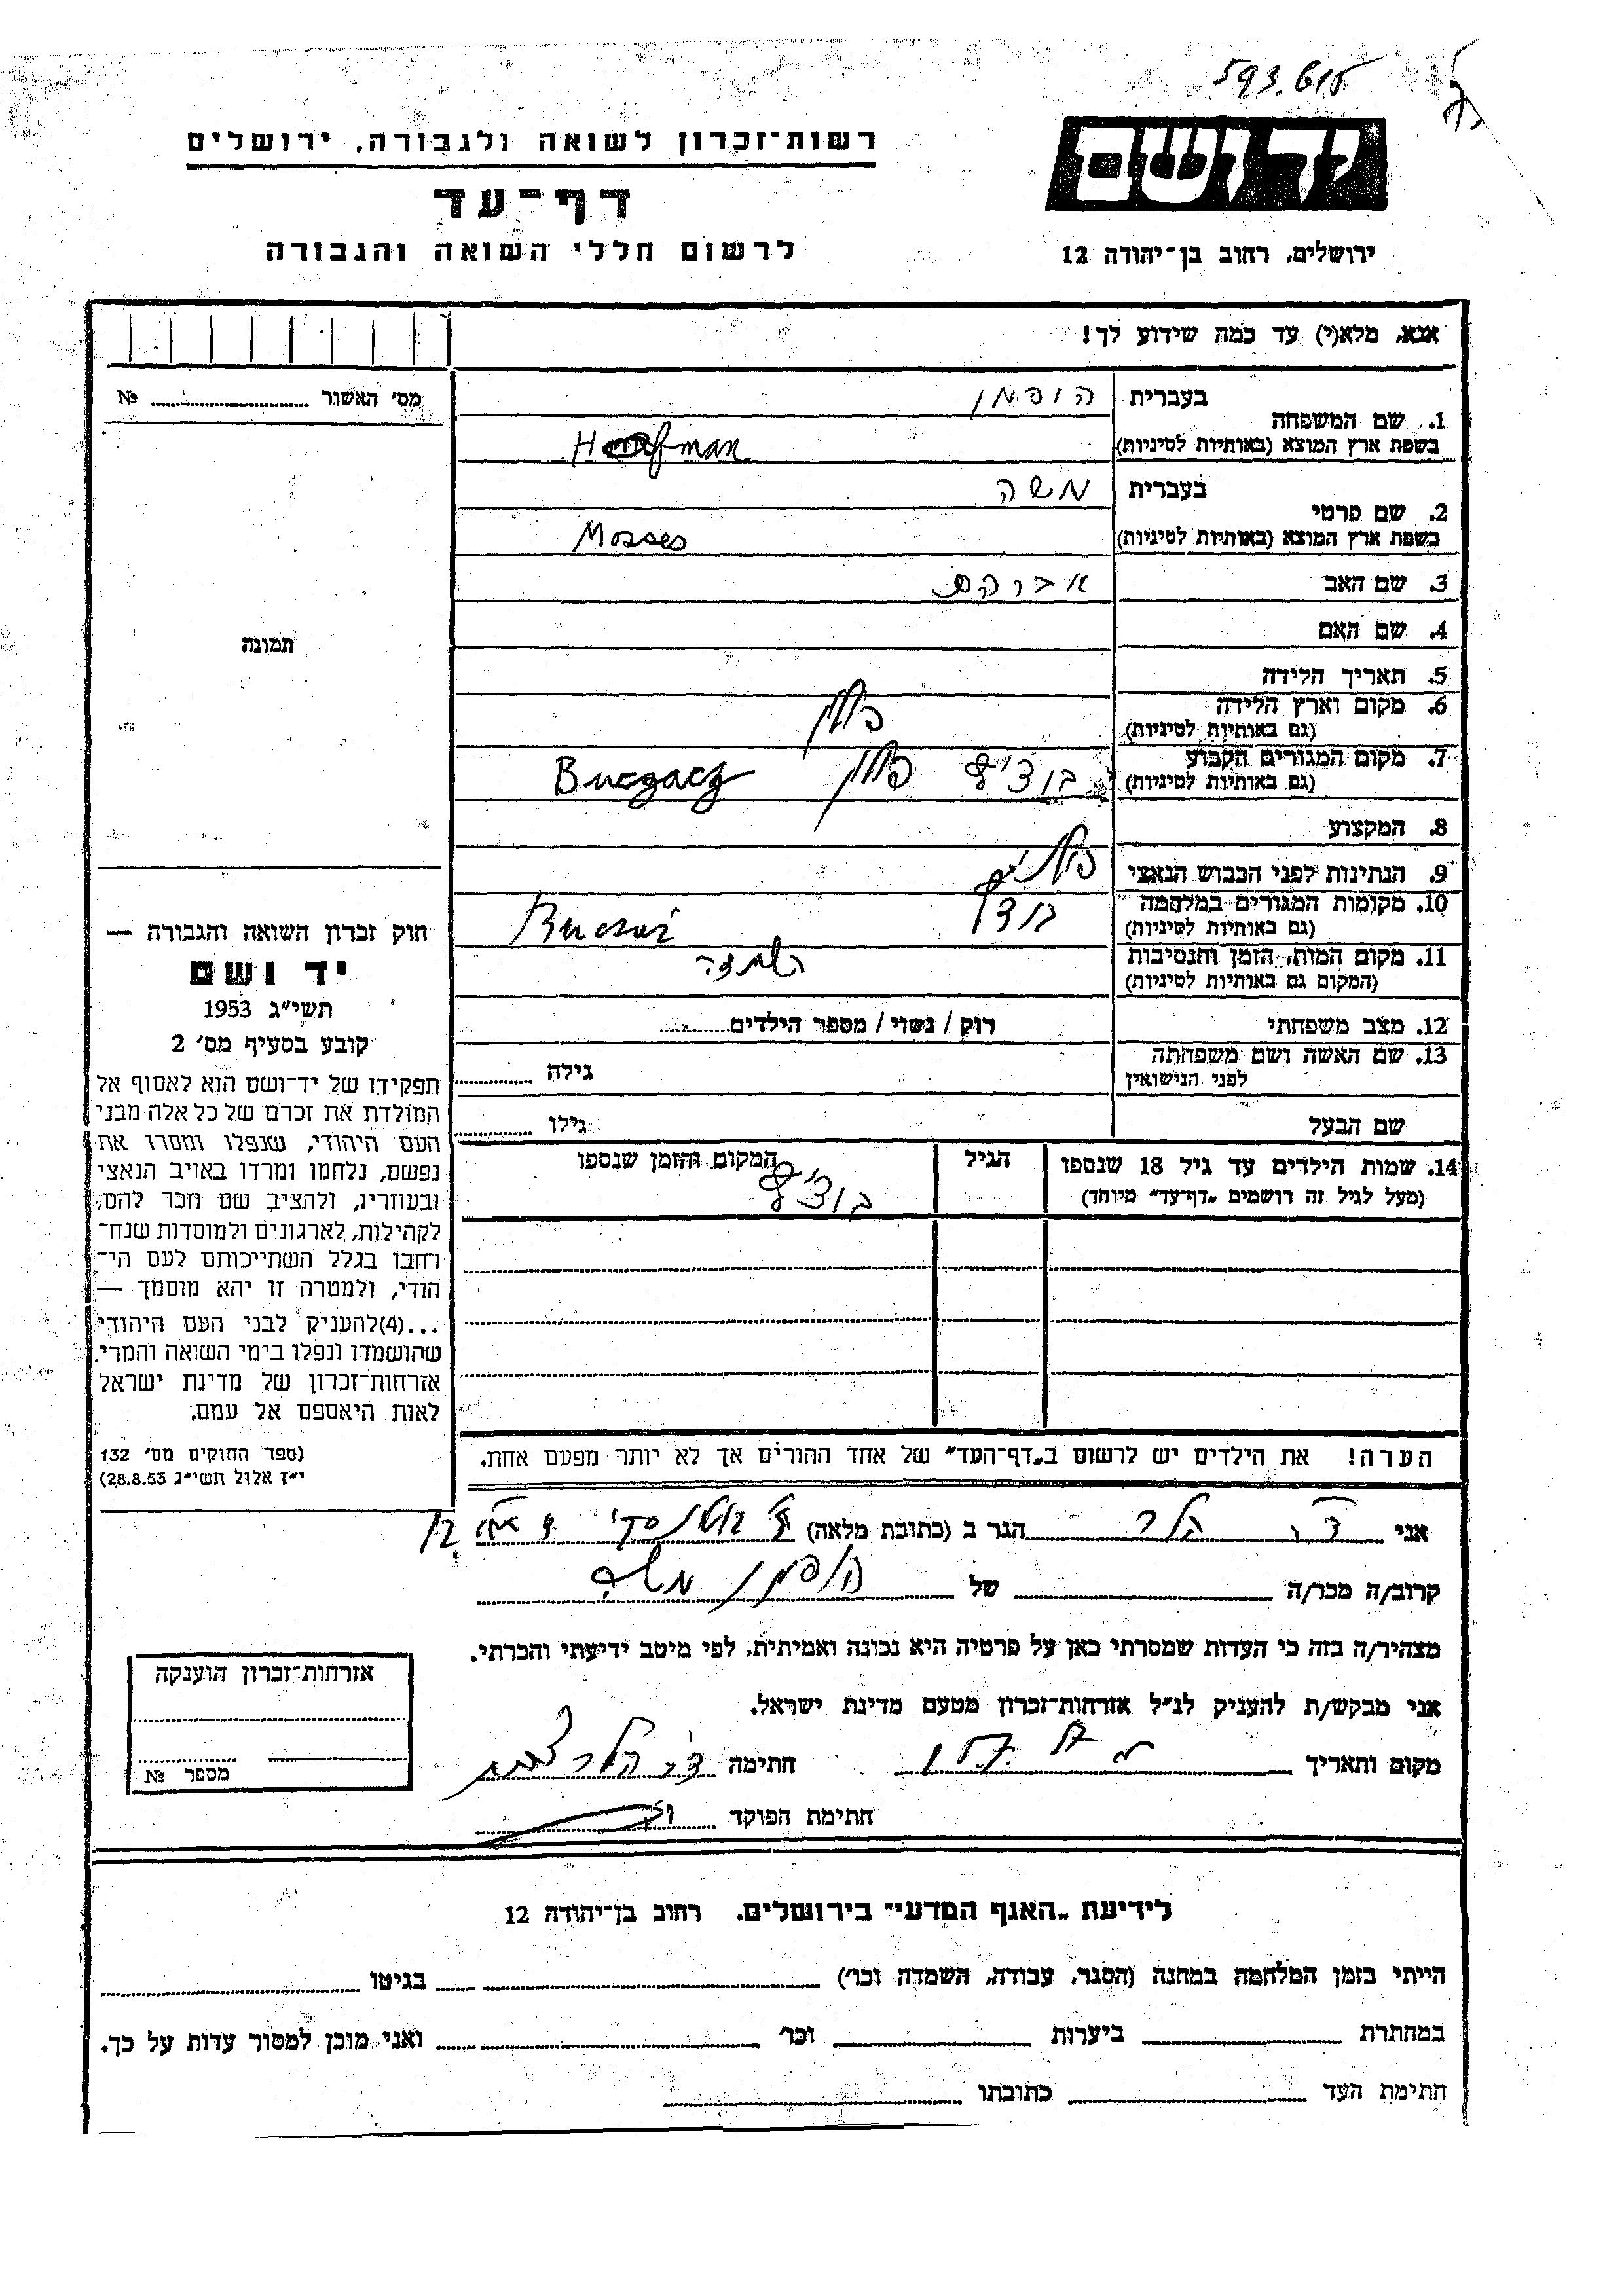 593.615
רשות־זכרון לשואה ולגבורה, ירושלים
יד ושם
דף־עד
לרשום חללי השואה והגבורה
ירושלים, רחוב בן־יהודה 12
אנא, מלא(י) עד כמה שידוע לך!
מס׳ האשור № 
תמונה
1. שם המשפחה
בעברית הופמן
בשפת ארץ המוצא (באותיות לטיניות) Hoofman
2. שם פרטי
בעברית משה
בשפת ארץ המוצא (באותיות לטיניות) Mosses
3. שם האב אברהם
4. שם האם
5. תאריך הלידה
6. מקום וארץ הלידה פולין
(גם באותיות לטיניות)
7. מקום המגורים הקבוע פולין Buczacz
(גם באותיות לטיניות)
8. המקצוע
9. הנתינות לפני הכבוש הנאצי
10. מקומות המגורים במלחמה
(גם באותיות לטיניות)
11. מקום המות, הזמן והנסיבות השמדה
(המקום גם באותיות לטיניות)
12. מצב משפחתי רוק / נשוי / מספר הילדים
13. שם האשה ושם משפחתה גילה
לפני הנישואין
שם הבעל גילו
14. שמות הילדים עד גיל 18 שנספו הגיל המקום והזמן שנספו
(מעל לגיל זה רושמים „דף־עד״ מיוחד)
הערה! את הילדים יש לרשום ב„דף־העד״ של אחד ההורים אך לא יותר מפעם אחת.
חוק זכרון השואה והגבורה —
יד ושם
תשי״ג 1953
קובע בסעיף מס׳ 2
תפקידו של יד־ושם הוא לאסוף אל
המולדת את זכרם של כל אלה מבני
העם היהודי, שנפלו ומסרו את
נפשם, נלחמו ומרדו באויב הנאצי
ובעוזריו, ולהציב שם וזכר להם,
לקהילות, לארגונים ולמוסדות שנח־
רחבו בגלל השתייכותם לעם הי־
הודי, ולמטרה זו יהא מוסמך —
...(4)להעניק לבני העם היהודי
שהושמדו ונפלו בימי השואה והמרי,
אזרחות־זכרון של מדינת ישראל
לאות היאספם אל עמם.
(ספר החוקים מס׳ 132
י״ז אלול תשי״ג 28.8.53)
אני הגר ב (כתובת מלאה) 12
קרוב/ה מכר/ה של הופמן משה
מצהיר/ה בזה כי העדות שמסרתי כאן על פרטיה היא נכונה ואמיתית, לפי מיטב ידיעתי והכרתי.
אני מבקש/ת להעניק לנ״ל אזרחות־זכרון מטעם מדינת ישראל.
מקום ותאריך חתימה
חתימת הפוקד
אזרחות־זכרון הוענקה
מספר №
לידיעת „האגף המדעי״ בירושלים, רחוב בן־יהודה 12
הייתי בזמן המלחמה במחנה (הסגר, עבודה, השמדה וכו׳) בגיטו
במחתרת ביערות וכו׳ ואני מוכן למסור עדות על כך.
חתימת העד כתובתו